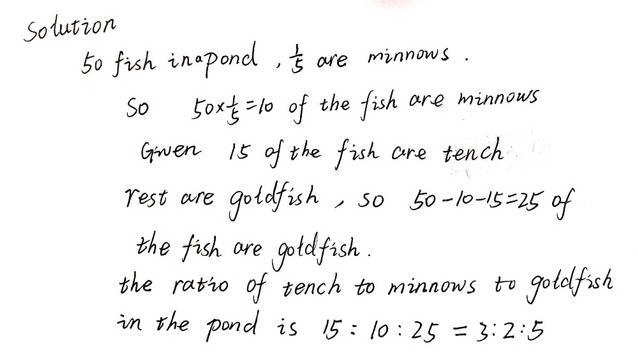 Solution
50 fish in a pond, 1/5 are minnows.
So 50×1/5=10 of the fish are minnows
Given 15 of the fish are tench
rest are goldfish, so 50-10-15=25 of
the fish are goldfish.
the ratio of tench to minnows to goldfish
in the pond is 15:10:25 = 3:2:5